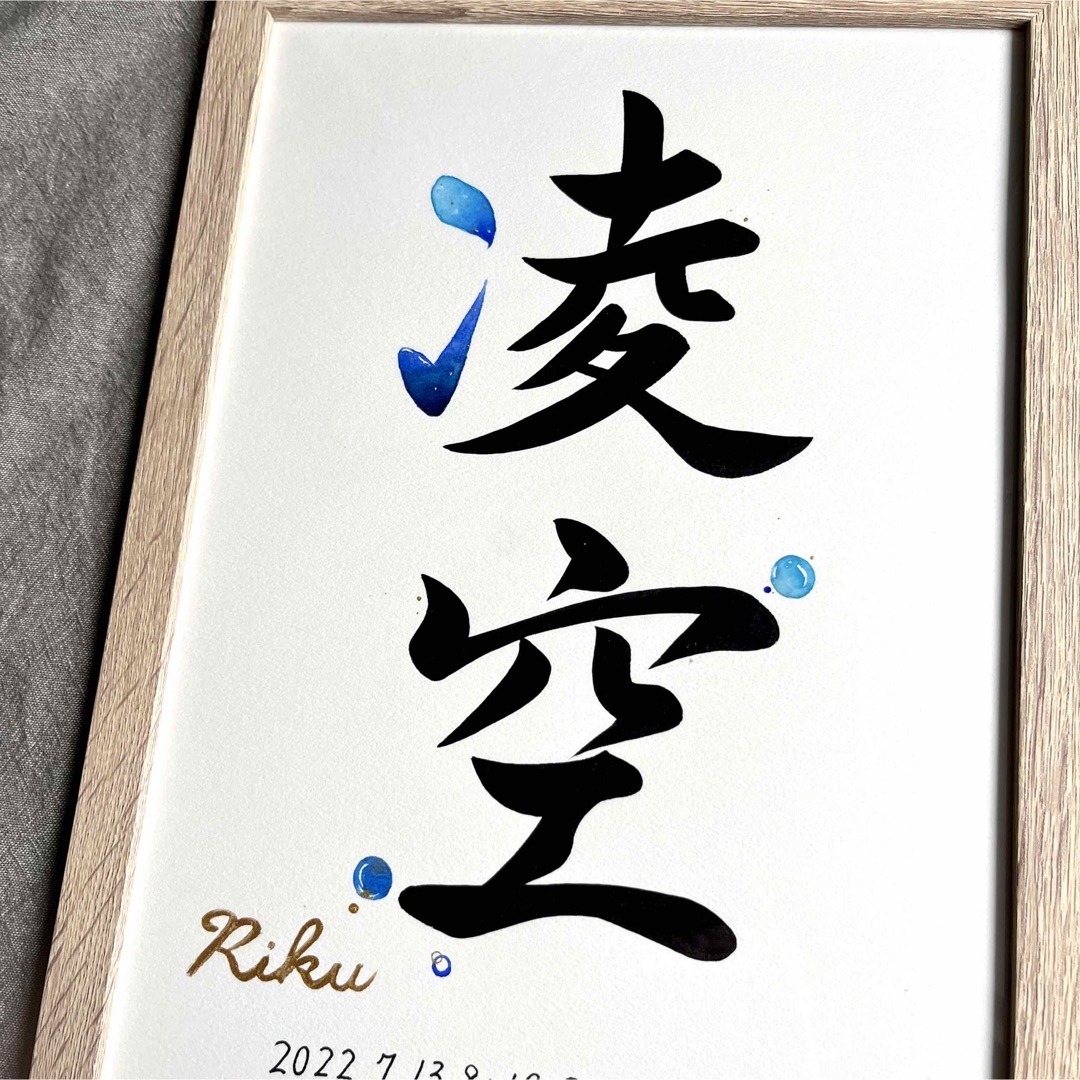 凌空
Riku
2022.7.13